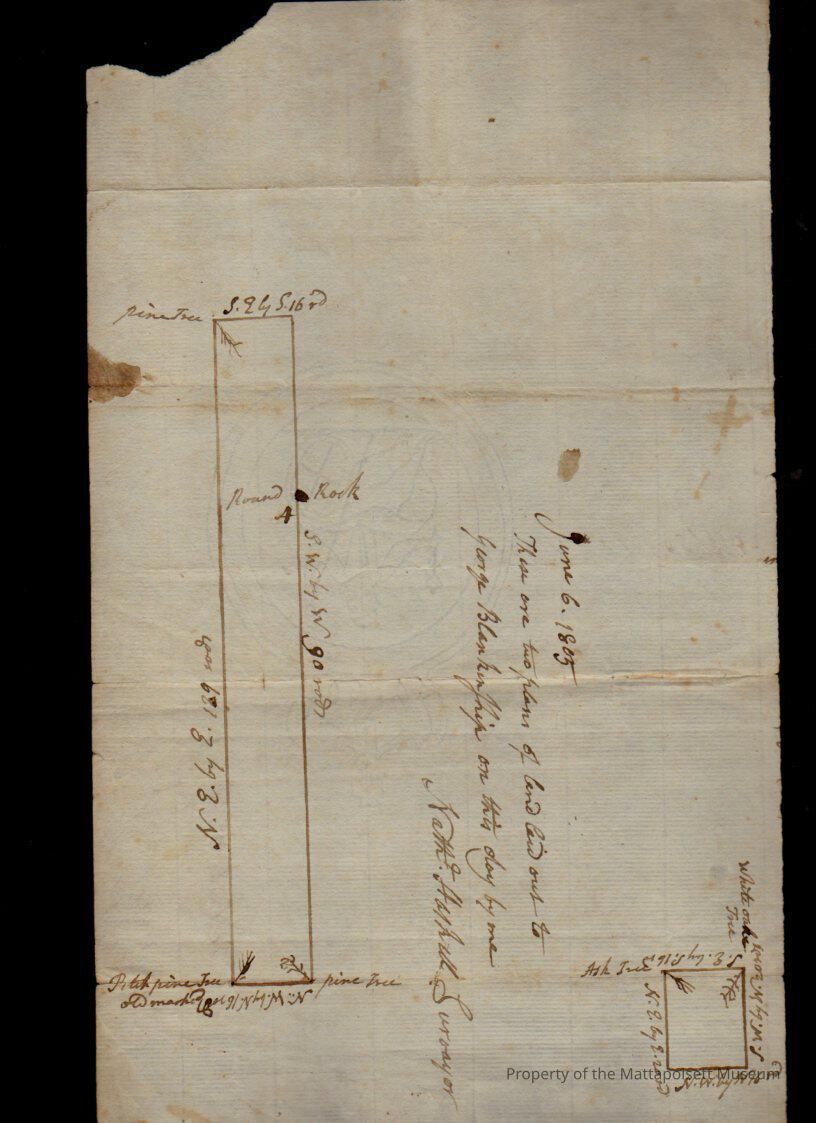 pine Tree
S. E by S. 16 rd
Round Rock
4
S. W. by W 90 rods
N. E. by E. 189 rods
Pitch pine Tree
old mark
N. W. by N 16
pine Tree
June 6. 1805
These are two plans of land laid out to
George Blankinship on this day by me
Nathl. Haskell Surveyor
White oake
Tree
Ash Tree
S. E. by S. 16
S. W. by W. 20 rod
N. E. by E. 20 rd
N. W. by N.
Property of the Mattapoisett Museum